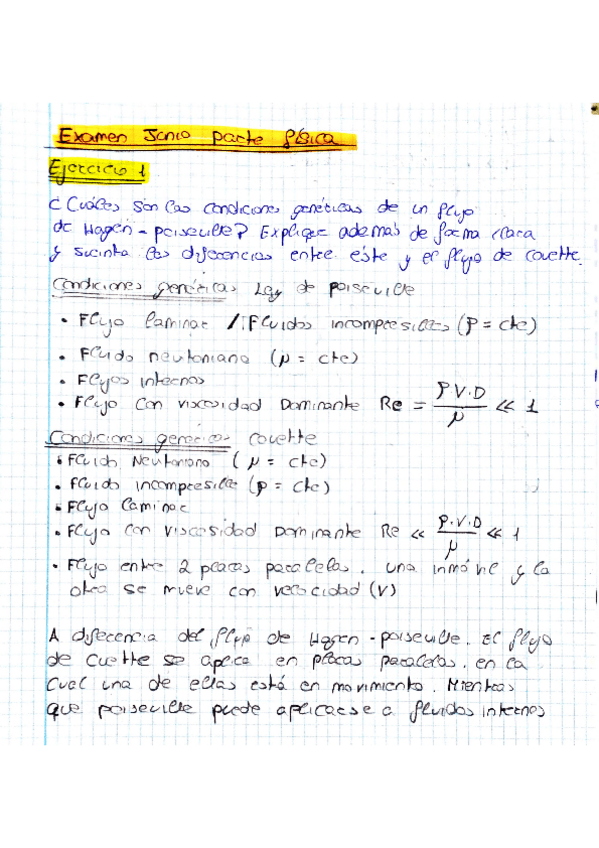 Examen Junio parte física
Ejercicio 1
¿Cuáles son las condiciones genéricas de un flujo
de Hagen-poiseuille? Explique además de forma clara
y sucinta las diferencias entre éste y el flujo de couette.
Condiciones genéricas Ley de poiseuille
• Flujo laminar / Fluidos incompresibles (ρ = cte)
• Fluido newtoniano (μ = cte)
• Flujos internos
• Flujo con viscosidad Dominante Re = ρV·D/μ ≪ 1
Condiciones genéricas couette
• Fluido Newtoniano (μ = cte)
• Fluido incompresible (ρ = cte)
• Flujo laminar
• Flujo con viscosidad Dominante Re ≪ ρ·V·D/μ ≪ 1
• Flujo entre 2 placas paralelas. una inmóvil y la
otra se mueve con velocidad (V)
A diferencia del flujo de Hagen-poiseuille. El flujo
de Cuette se aplica en placas paralelas, en la
cual una de ellas está en movimiento. Mientras
que poiseuille puede aplicarse a fluidos internos